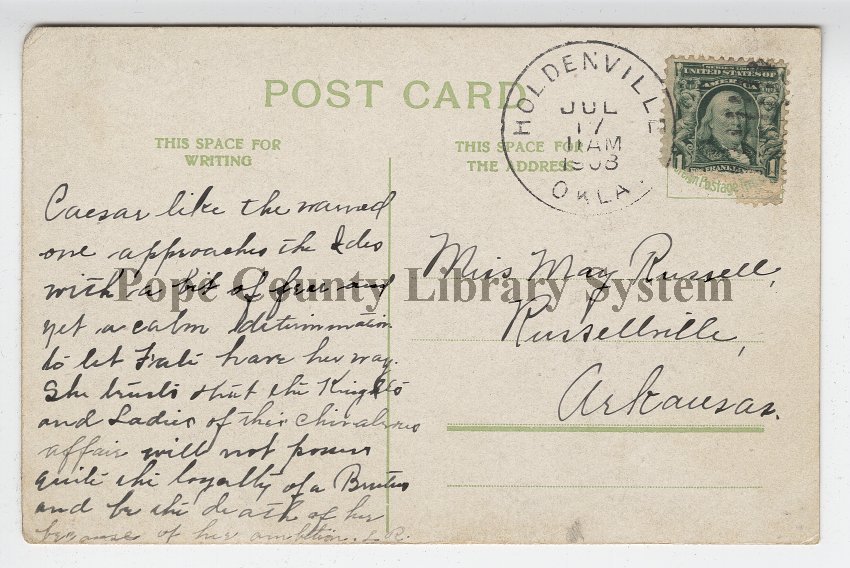 POST CARD
THIS SPACE FOR
WRITING
THIS SPACE FOR
THE ADDRESS
HOLDENVILLE
JUL
17
11 AM
1908
OKLA.
UNITED STATES OF
AMERICA
1
Foreign Postage
Caesar like the warned
one approaches the Ides
with a bit of fear and
yet a calm determination
to let Fate have her way.
She trusts that the Knights
and Ladies of this chivalrous
affair will not possess
quite the loyalty of a Brutus
and be the death of her
because of her ambition. L.R.
Miss May Russell,
Russellville,
Arkansas.
Pope County Library System